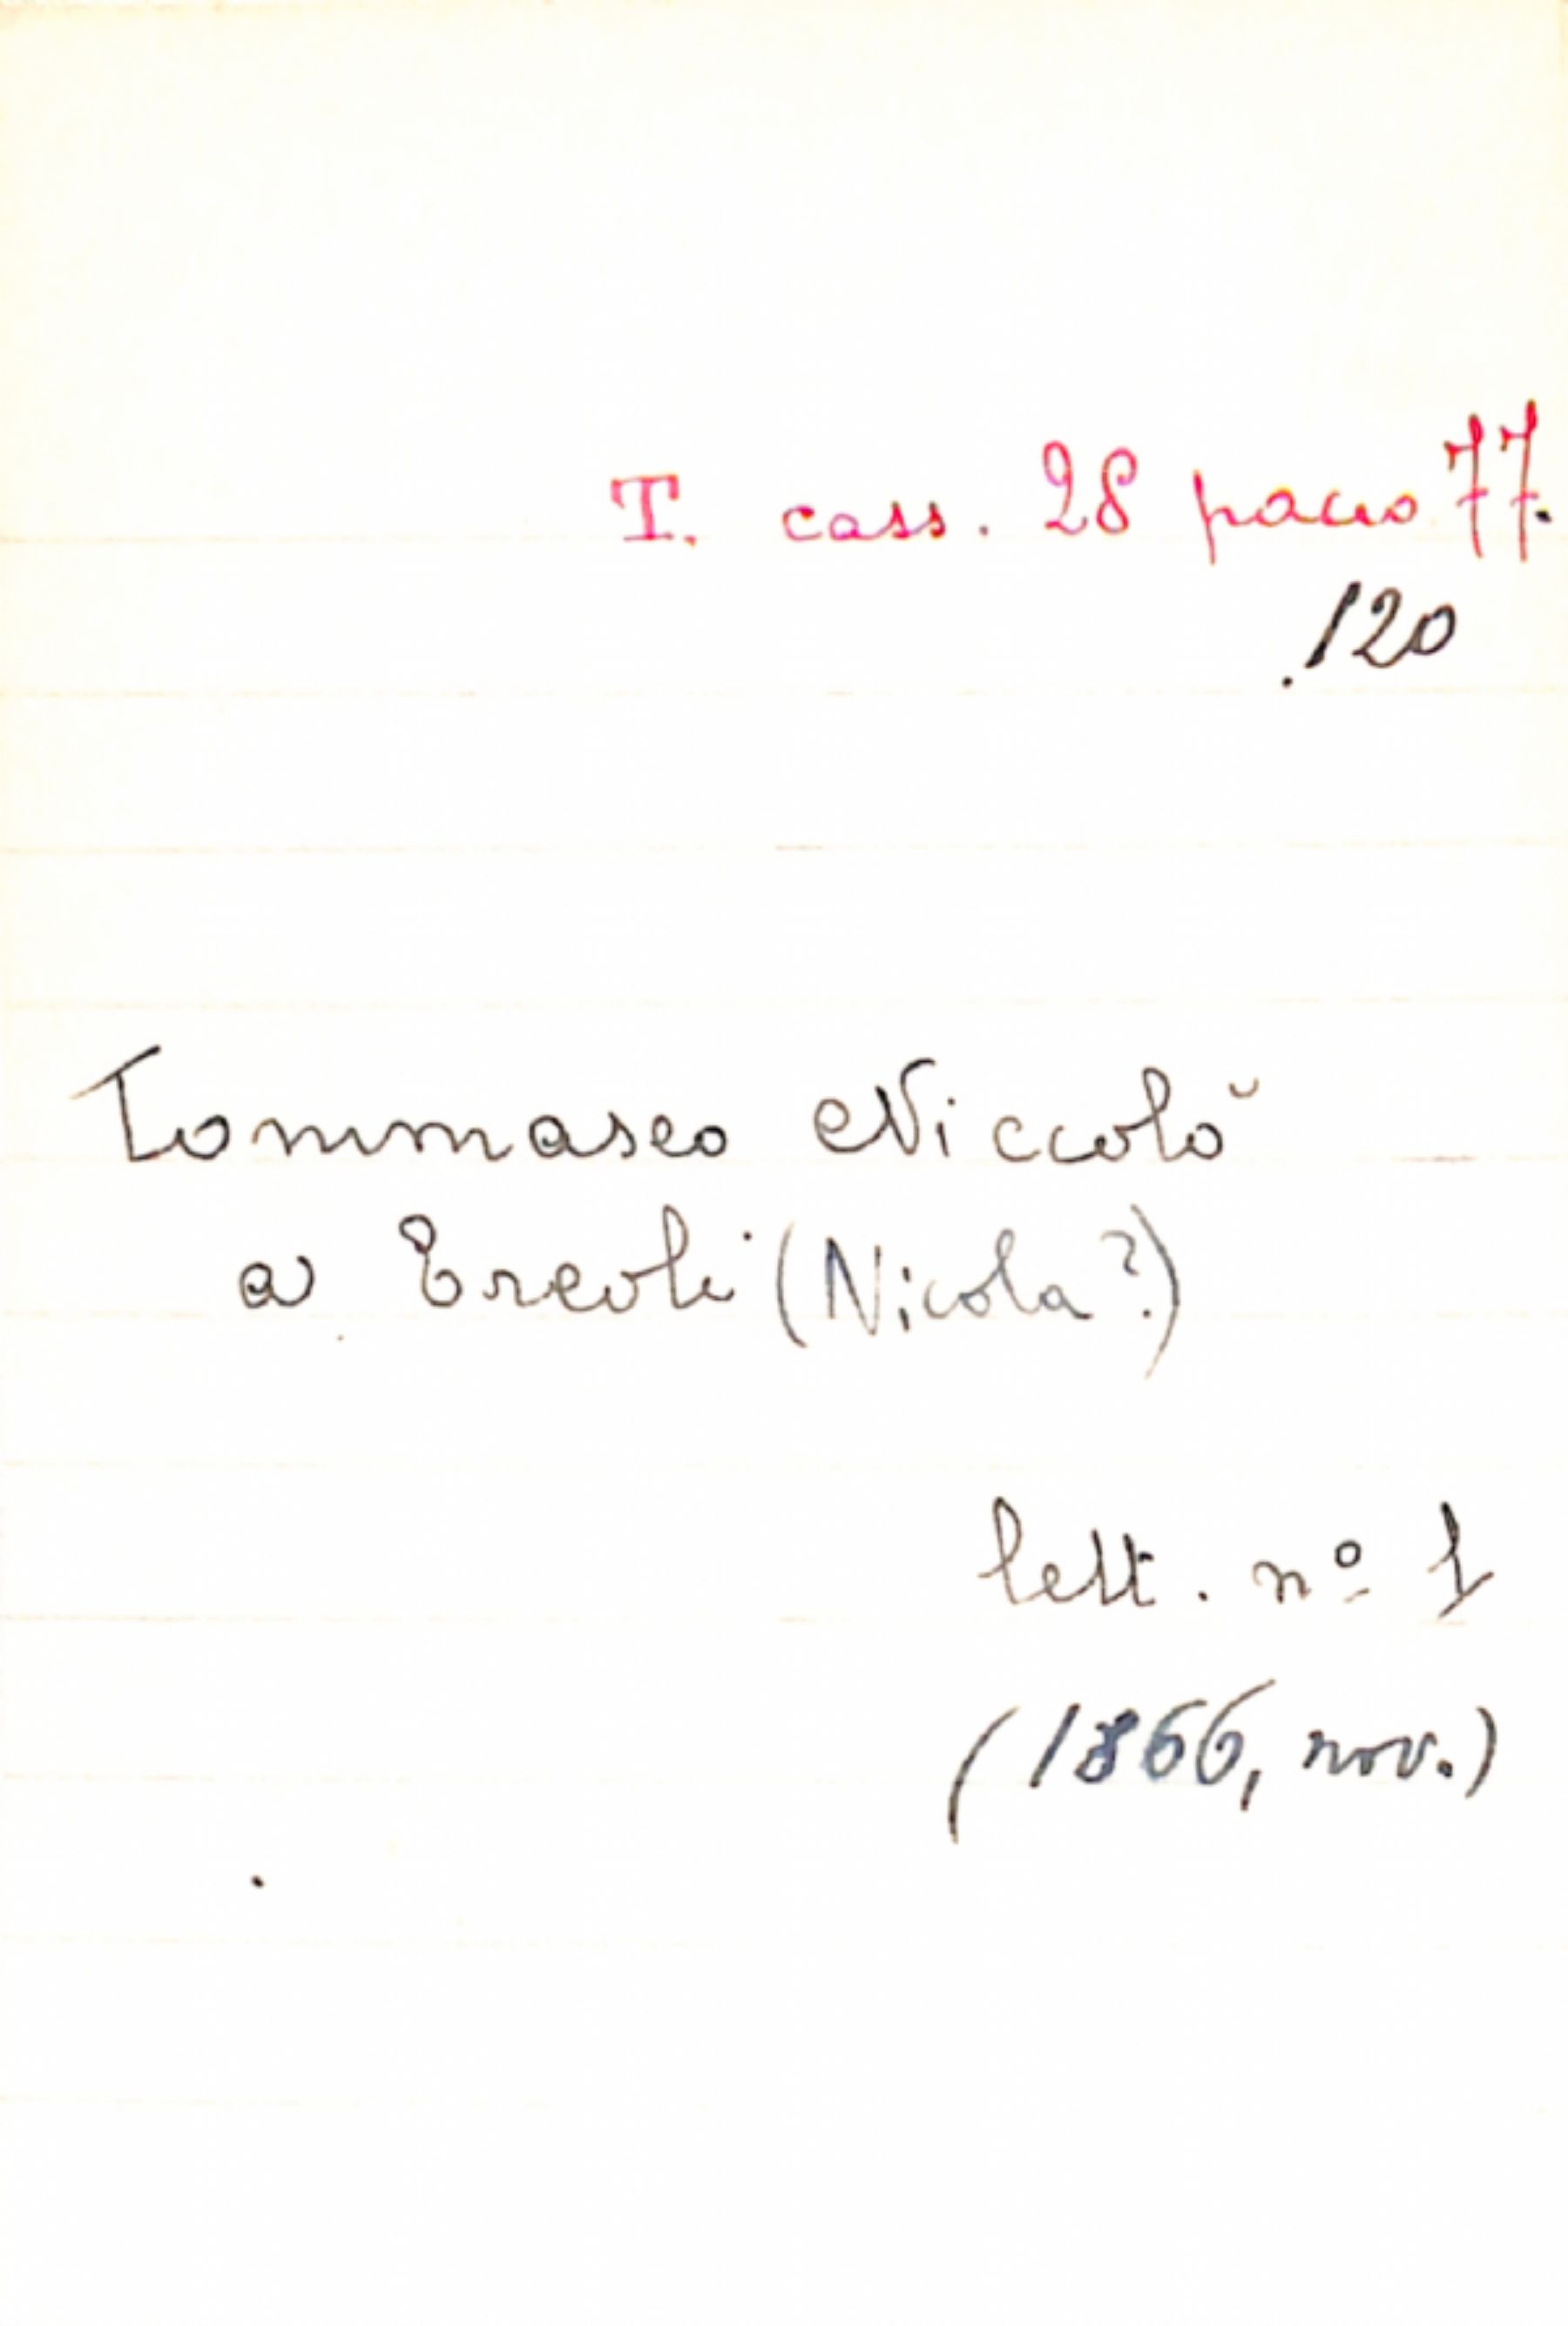 T. cass. 28 pacco 77.
.120
Tommaseo Niccolò
a Ercoli (Nicola?)
lett. nº 1
(1866, nov.)